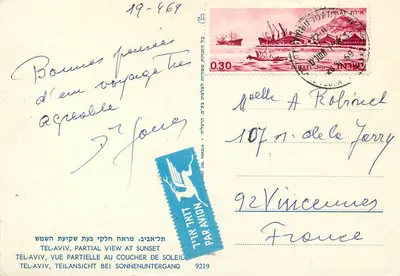 19-469
Bonnes pensées
d'un voyage très
agréable
אילת
0.30
ישראל
Melle A Robinet
107 r. de la Jarry
92 Vincennes
France
דאר אויר
PAR AVION
תל-אביב: מראה חלקי בעת שקיעת השמש
TEL-AVIV, PARTIAL VIEW AT SUNSET
TEL-AVIV, VUE PARTIELLE AU COUCHER DE SOLEIL
TEL-AVIV, TEILANSICHT BEI SONNENUNTERGANG 9219